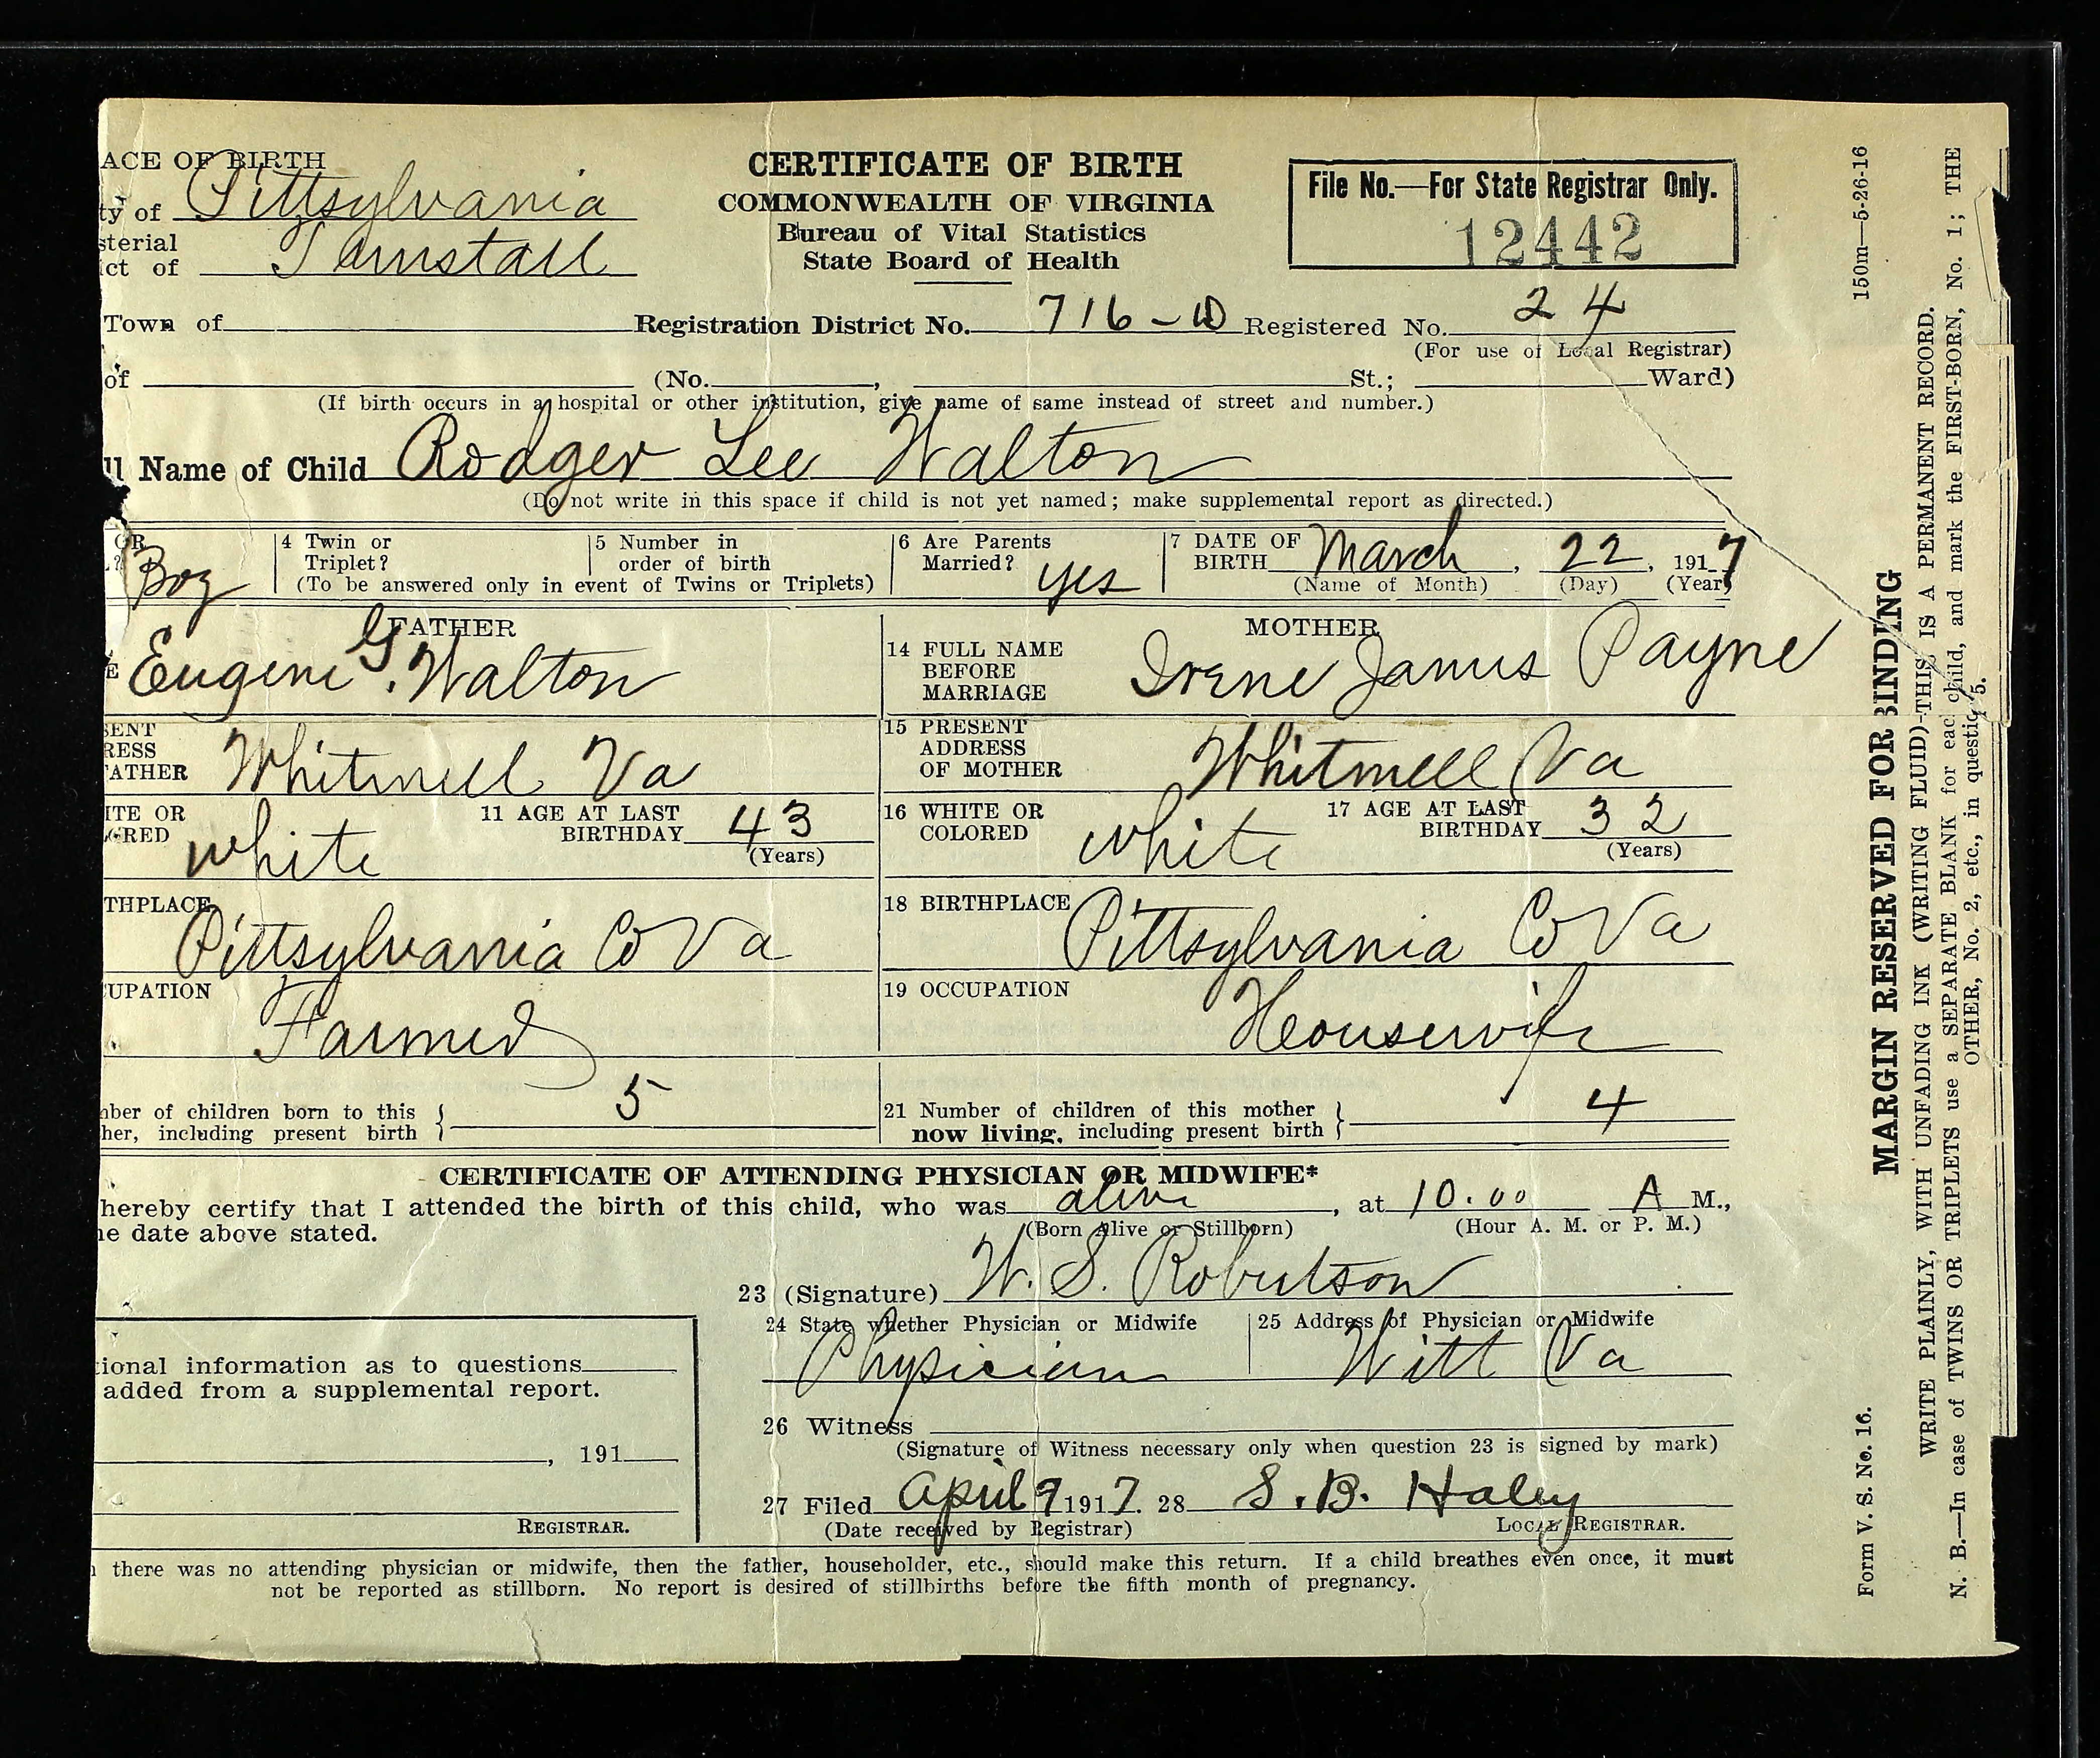 ACE OF BIRTH
ty of Pittsylvania
sterial
ict of Tunstall
CERTIFICATE OF BIRTH
COMMONWEALTH OF VIRGINIA
Bureau of Vital Statistics
State Board of Health
File No.—For State Registrar Only.
12442
Town of Registration District No. 716-D Registered No. 24
(For use of Local Registrar)
of (No. , St.; Ward)
(If birth occurs in a hospital or other institution, give name of same instead of street and number.)
ll Name of Child Rodger Lee Walton
(Do not write in this space if child is not yet named; make supplemental report as directed.)
OR
? Boy
4 Twin or
Triplet?
5 Number in
order of birth
(To be answered only in event of Twins or Triplets)
6 Are Parents
Married? yes
7 DATE OF
BIRTH March, 22, 1917
(Name of Month) (Day) (Year)
FATHER
E Eugene G. Walton
MOTHER
14 FULL NAME
BEFORE
MARRIAGE
Irene Janus Payne
SENT
RESS
FATHER Whitmell Va
15 PRESENT
ADDRESS
OF MOTHER Whitmell Va
ITE OR
ORED white
11 AGE AT LAST
BIRTHDAY 43
(Years)
16 WHITE OR
COLORED white
17 AGE AT LAST
BIRTHDAY 32
(Years)
THPLACE
Pittsylvania Co Va
18 BIRTHPLACE
Pittsylvania Co Va
UPATION
Farmer
19 OCCUPATION
Housewife
nber of children born to this
her, including present birth } 5
21 Number of children of this mother
now living, including present birth } 4
CERTIFICATE OF ATTENDING PHYSICIAN OR MIDWIFE*
hereby certify that I attended the birth of this child, who was alive, at 10.00 A M.,
(Born Alive or Stillborn) (Hour A. M. or P. M.)
he date above stated.
23 (Signature) W. S. Robertson
24 State whether Physician or Midwife
Physician
25 Address of Physician or Midwife
Witt Va
tional information as to questions
added from a supplemental report.
, 191
REGISTRAR.
26 Witness
(Signature of Witness necessary only when question 23 is signed by mark)
27 Filed April 9 1917. 28 S. B. Haley
(Date received by Registrar) LOCAL REGISTRAR.
n there was no attending physician or midwife, then the father, householder, etc., should make this return. If a child breathes even once, it must
not be reported as stillborn. No report is desired of stillbirths before the fifth month of pregnancy.
Form V. S. No. 16.
150m—5-26-16
MARGIN RESERVED FOR BINDING
WRITE PLAINLY, WITH UNFADING INK (WRITING FLUID)-THIS IS A PERMANENT RECORD.
N. B.—In case of TWINS OR TRIPLETS use a SEPARATE BLANK for each child, and mark the FIRST-BORN, No. 1; THE
OTHER, No. 2, etc., in questio 5.